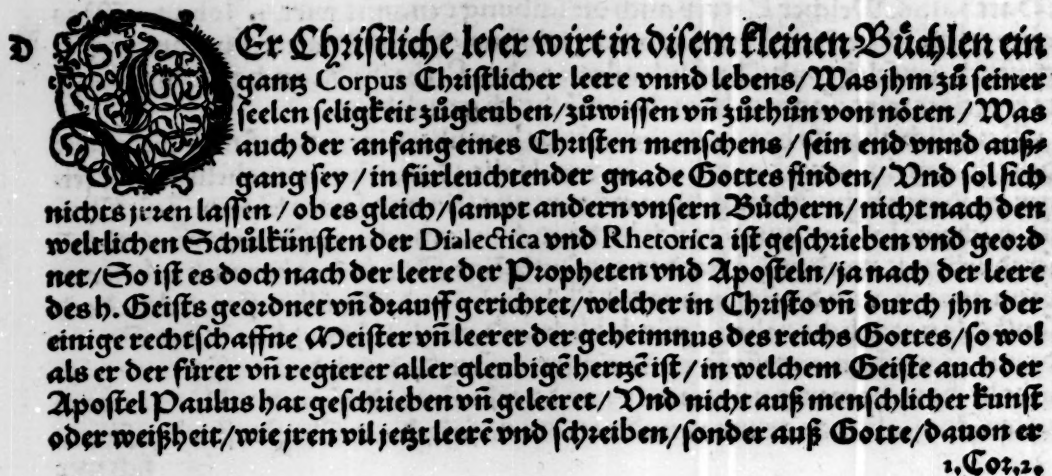 D DEr Christliche leser wirt in disem kleinen Büchlen ein
gantz Corpus Christlicher leere vnnd lebens/Was jhm zů seiner
seelen seligkeit zůgleuben/zůwissen vñ zůthůn von nöten/Was
auch der anfang eines Christen menschens/sein end vnnd auß⸗
gang sey/in fürleuchtender gnade Gottes finden/Vnd sol sich
nichts jrren lassen/ob es gleich/sampt andern vnsern Büchern/nicht nach den
weltlichen Schůlkünsten der Dialectica vnd Rhetorica ist geschrieben vnd geord
net/So ist es doch nach der leere der Propheten vnd Aposteln/ja nach der leere
des h. Geists geordnet vñ drauff gerichtet/welcher in Christo vñ durch jhn der
einige rechtschaffne Meister vñ leerer der geheimnus des reichs Gottes/so wol
als er der fürer vñ regierer aller gleubigẽ hertzẽ ist/in welchem Geiste auch der
Apostel Paulus hat geschrieben vñ geleeret/Vnd nicht auß menschlicher kunst
oder weißheit/wie jren vil jetzt leerẽ vnd schreiben/sonder auß Gotte/dauon er
1. Cor. 2.